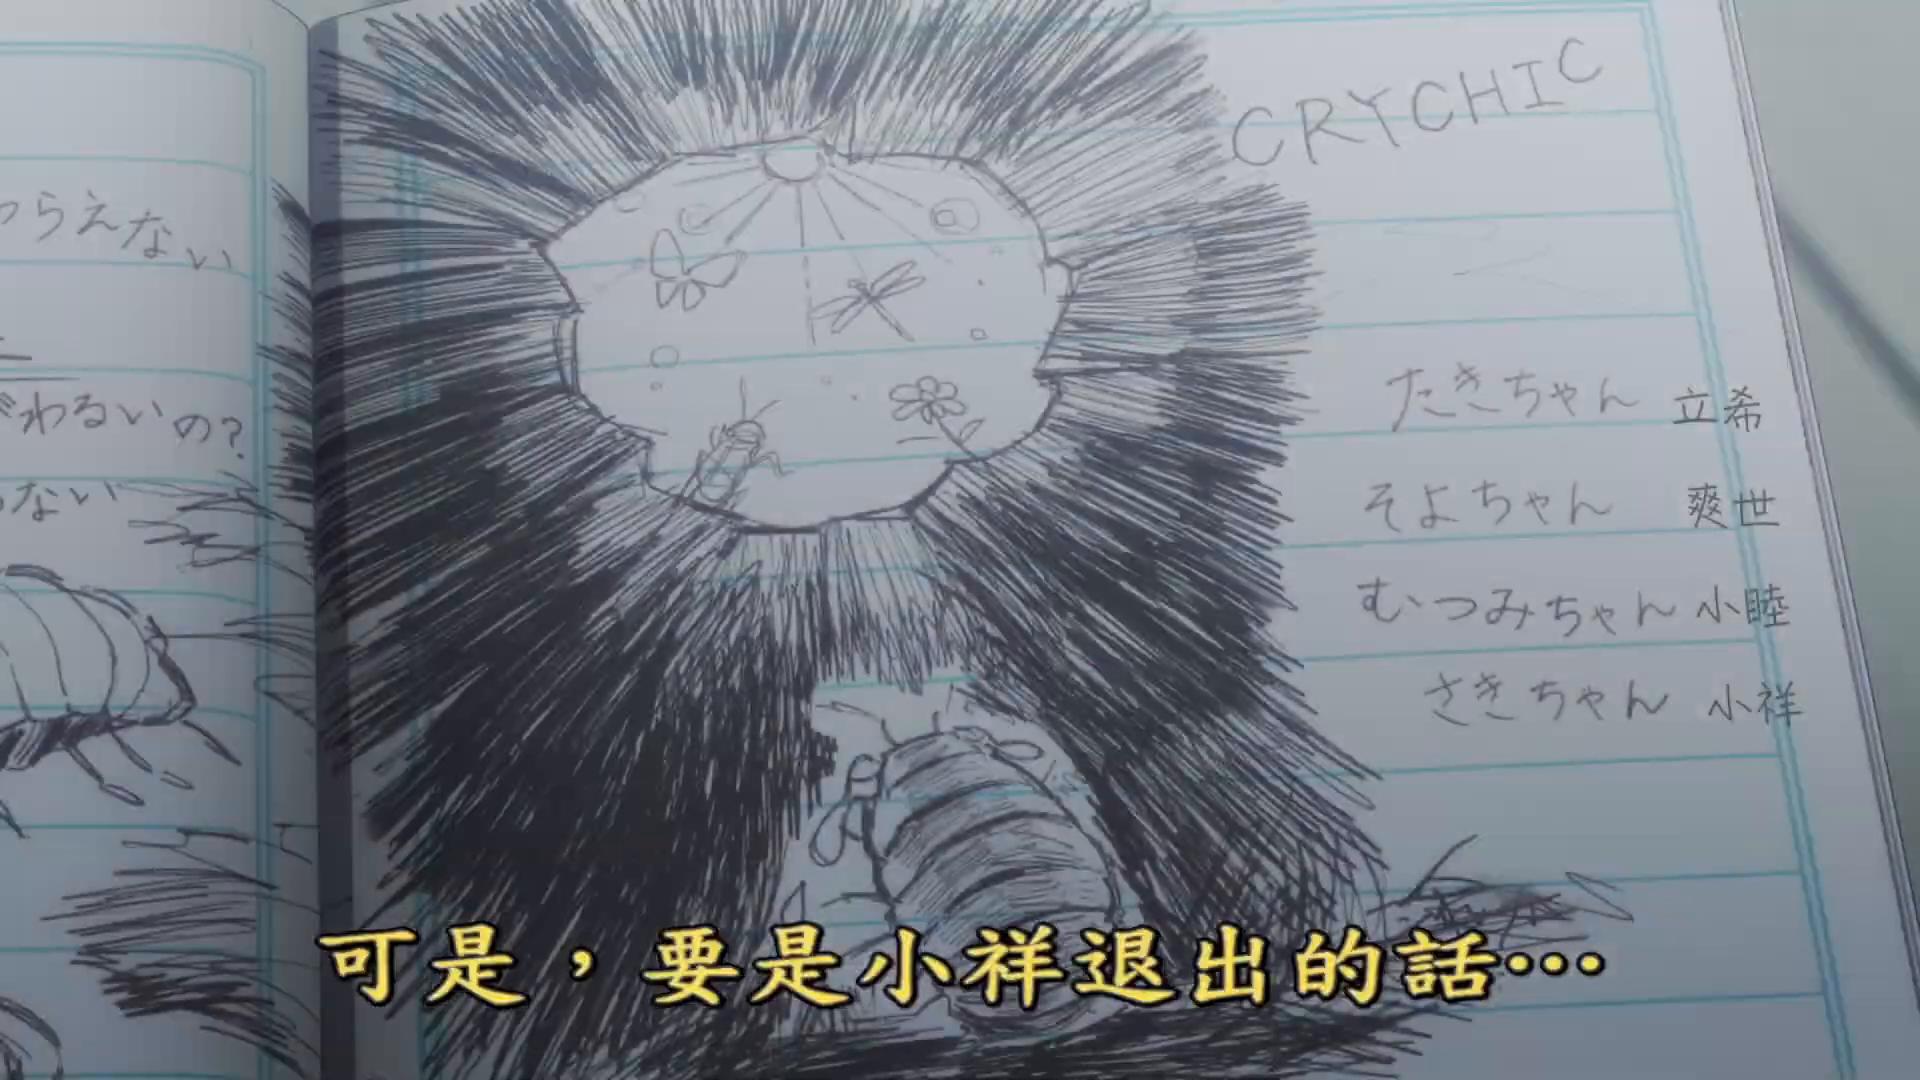 らえない
わるいの?
ない
CRYCHIC
たきちゃん 立希
そよちゃん 爽世
むつみちゃん 小睦
さきちゃん 小祥
可是，要是小祥退出的話…